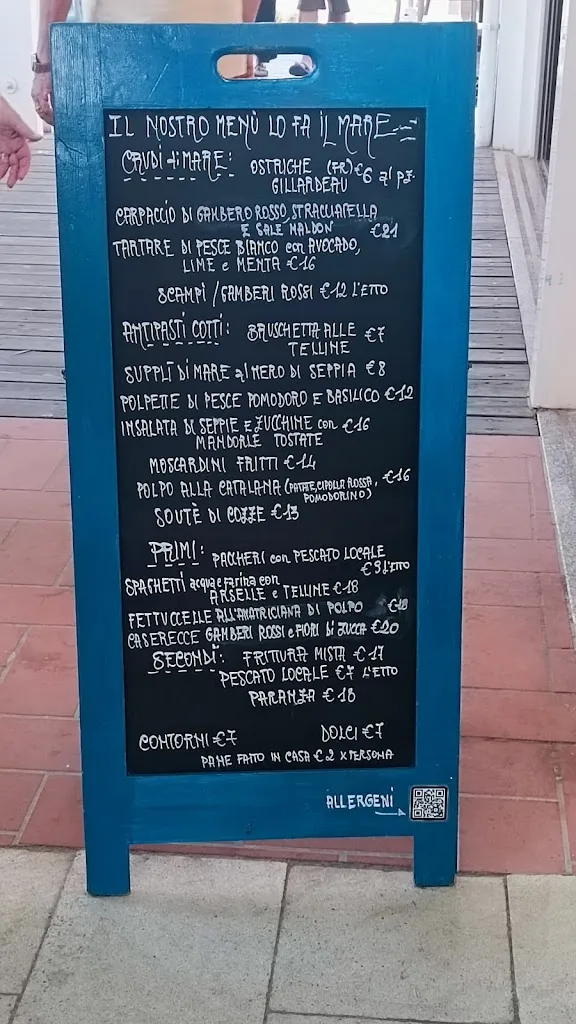 IL NOSTRO MENÙ LO FA IL MARE
CRUDI di MARE: OSTRICHE (FR) €6 al pz.
GILLARDEAU
CARPACCIO DI GAMBERO ROSSO, STRACCIATELLA
E SALE MALDON €21
TARTARE DI PESCE BIANCO con AVOCADO,
LIME e MENTA €16
SCAMPI / GAMBERI ROSSI €12 L'ETTO
ANTIPASTI COTTI: BRUSCHETTA ALLE €7
TELLINE
SUPPLÌ DI MARE al NERO DI SEPPIA €8
POLPETTE DI PESCE POMODORO E BASILICO €12
INSALATA DI SEPPIE E ZUCCHINE con €16
MANDORLE TOSTATE
MOSCARDINI FRITTI €14
POLPO ALLA CATALANA (PATATE, CIPOLLA ROSSA, €16
POMODORINO)
SOUTÈ DI COZZE €13
PRIMI: PACCHERI con PESCATO LOCALE
€9 L'ETTO
SPAGHETTI acqua e farina con
ARSELLE e TELLINE €18
FETTUCCELLE ALL'AMATRICIANA DI POLPO €18
CASERECCE GAMBERI ROSSI e FIORI DI ZUCCA €20
SECONDI: FRITTURA MISTA €17
PESCATO LOCALE €7 L'ETTO
PARANZA €18
CONTORNI €7 DOLCI €7
PANE FATTO IN CASA €2 X PERSONA
ALLERGENI